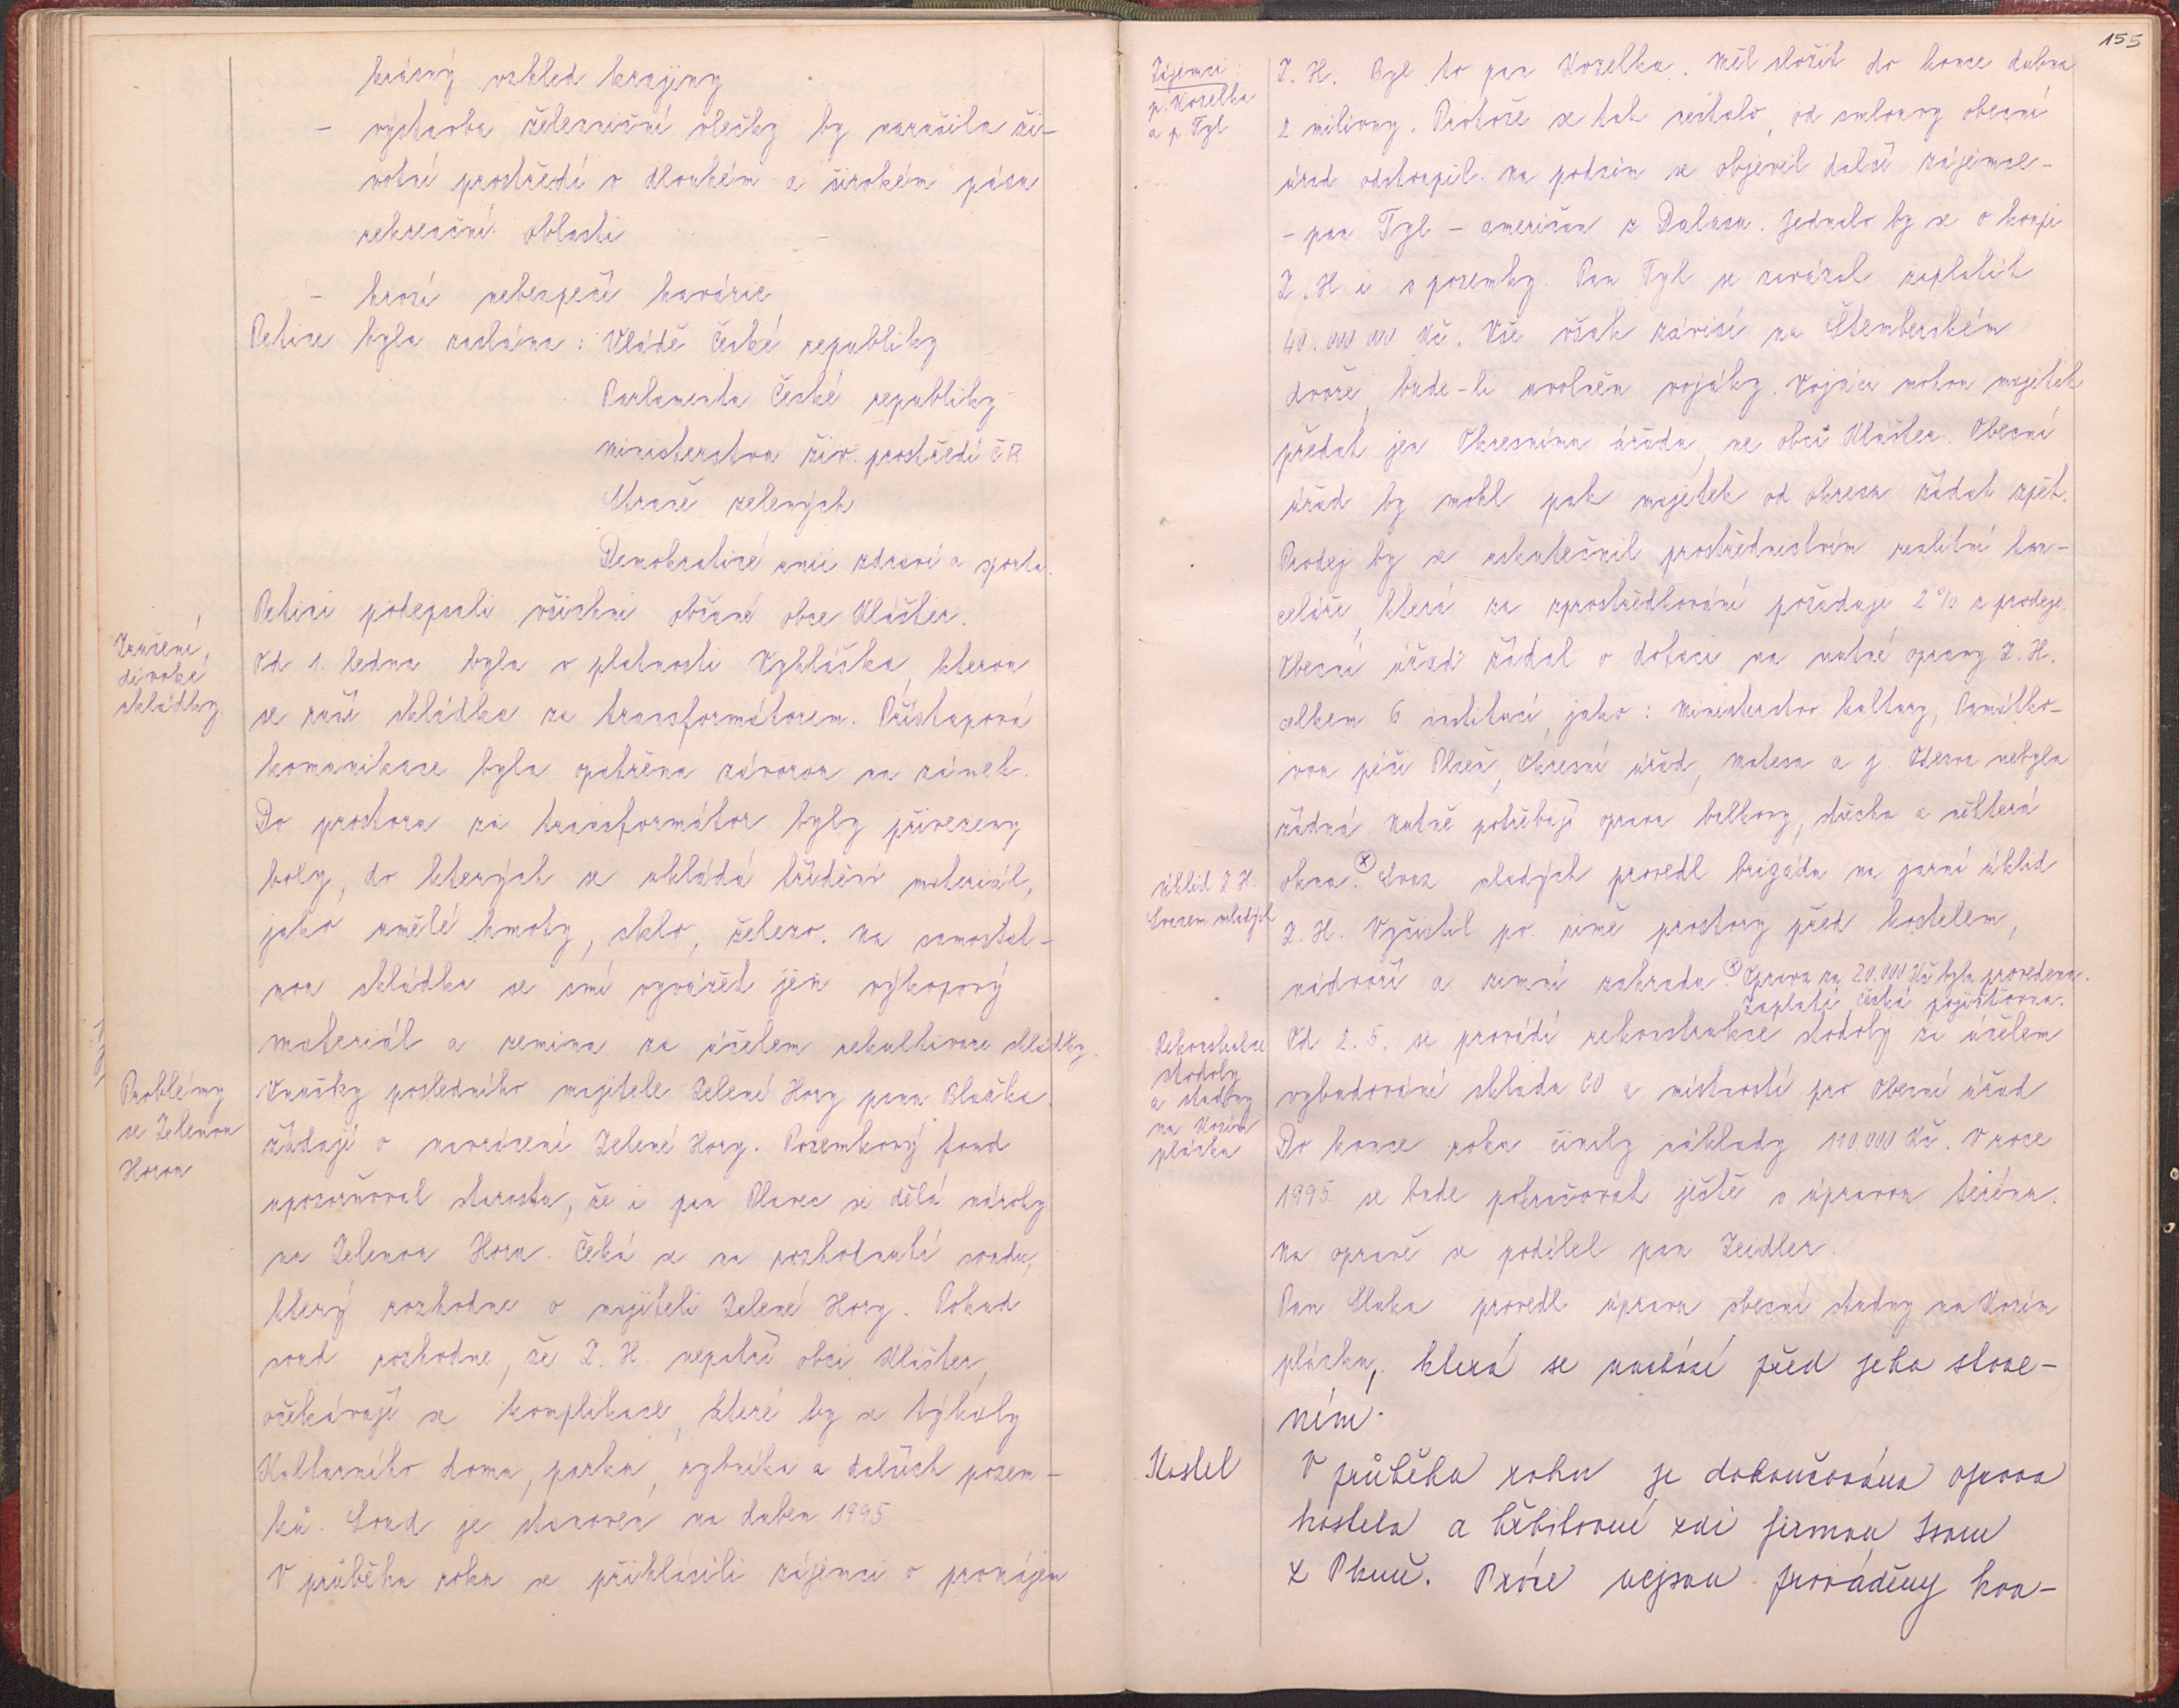 krásný vzhled krajiny
- výstavba železniční vlečky by narušila ži-
votní prostředí v dlouhém a širokém pásu
rekreační oblasti
- hrozí nebezpečí havárie
Petice byla zaslána: Vládě České republiky
Parlamentu České republiky
Ministerstvu živ. prostředí ČR
Straně zelených
Demokratické unii zdraví a sportu.
Petici podepsali všichni občané obce Klášter.
Zrušení
divoké
skládky
Od 1. ledna byla v platnosti Vyhláška, kterou
se ruší skládka za transformátorem. Přístupová
komunikace byla opatřena závorou na zámek.
Do prostoru za transformátor byly přivezeny
boxy, do kterých se ukládá tříděný materiál,
jako umělé hmoty, sklo, železo. Na samostat-
nou skládku se smí vyvážet jen výkopový
materiál a zemina za účelem rekultivace skládky.
Problémy
se Zelenou
Horou
Vnučky posledního majitele Zelené Hory pana
žádají o navrácení Zelené Hory. Pozemkový fond
upozorňoval starostu, že i pan Plavec si dělá nároky
na Zelenou Horu. Čeká se na rozhodnutí soudu,
který rozhodne o majiteli Zelené Hory. Pokud
soud rozhodne, že Z. H. nepatří obci Klášter,
očekávají se komplikace, které by se týkaly
Kulturního domu, parku, rybníka a dalších pozem-
ků. Soud je stanoven na duben 1995
V průběhu roku se přihlásili zájemci o pronájem
155
Zájemci:
p. Kozelka
a p. Tyl
Z. H. Byl to pan Kozelka. Měl složit do konce dubna
2 miliony. Protože se tak nestalo, od smlouvy obecní
úřad odstoupil. Na podzim se objevil další zájemce-
- pan Tyl - američan z Dalasu. Jednalo by se o koupi
Z. H i s pozemky. Pan Tyl se zavázal zaplatit
40.000 000 Kč. Vše však závisí na Štemberském
dvoře, bude-li uvolněn vojáky. Vojáci mohou majetek
předat jen Okresnímu úřadu, ne obci Klášter. Obecní
úřad by mohl pak majetek od okresu žádat zpět.
Prodej by se uskutečnil prostřednictvím realitní kan-
celáře, která za zprostředkování požaduje 2% z prodeje.
Obecní úřad žádal o dotaci na nutné opravy Z. H.
celkem 6 institucí, jako: Ministerstvo kultury, Památko-
vou péči Plzeň, Okresní úřad, Natesa a j. Odezva nebyla
žádná. Nutně potřebují opravu balkony, střecha a některá
úklid Z. H.
Svazem mladých
okna. ⓧ Svaz mladých provedl brigádu na jarní úklid
Z. H. Vyčistil po zimě prostory před kostelem,
nádvoří a zimní zahradu. ⓧ Oprava za 20.000 Kč byla provedena.
Zaplatí Česká pojišťovna.
Rekonstrukce
stodoly
a studny
na Kozím
plácku
Od 2. 5. se provádí rekonstrukce stodoly za účelem
vybudování skladu CO a místností pro Obecní úřad
Do konce roku činily náklady 110 000 Kč. V roce
1995 se bude pokračovat ještě s úpravou terénu.
Na opravě se podílel pan Zeidler.
Pan Sluka provedl úpravu obecní studny na Kozím
plácku, která se nachází před jeho stave-
ním.
Kostel
V průběhu roku je dokončována oprava
kostela a hřbitovní zdi firmou
z Plzně. Práce nejsou prováděny kva-